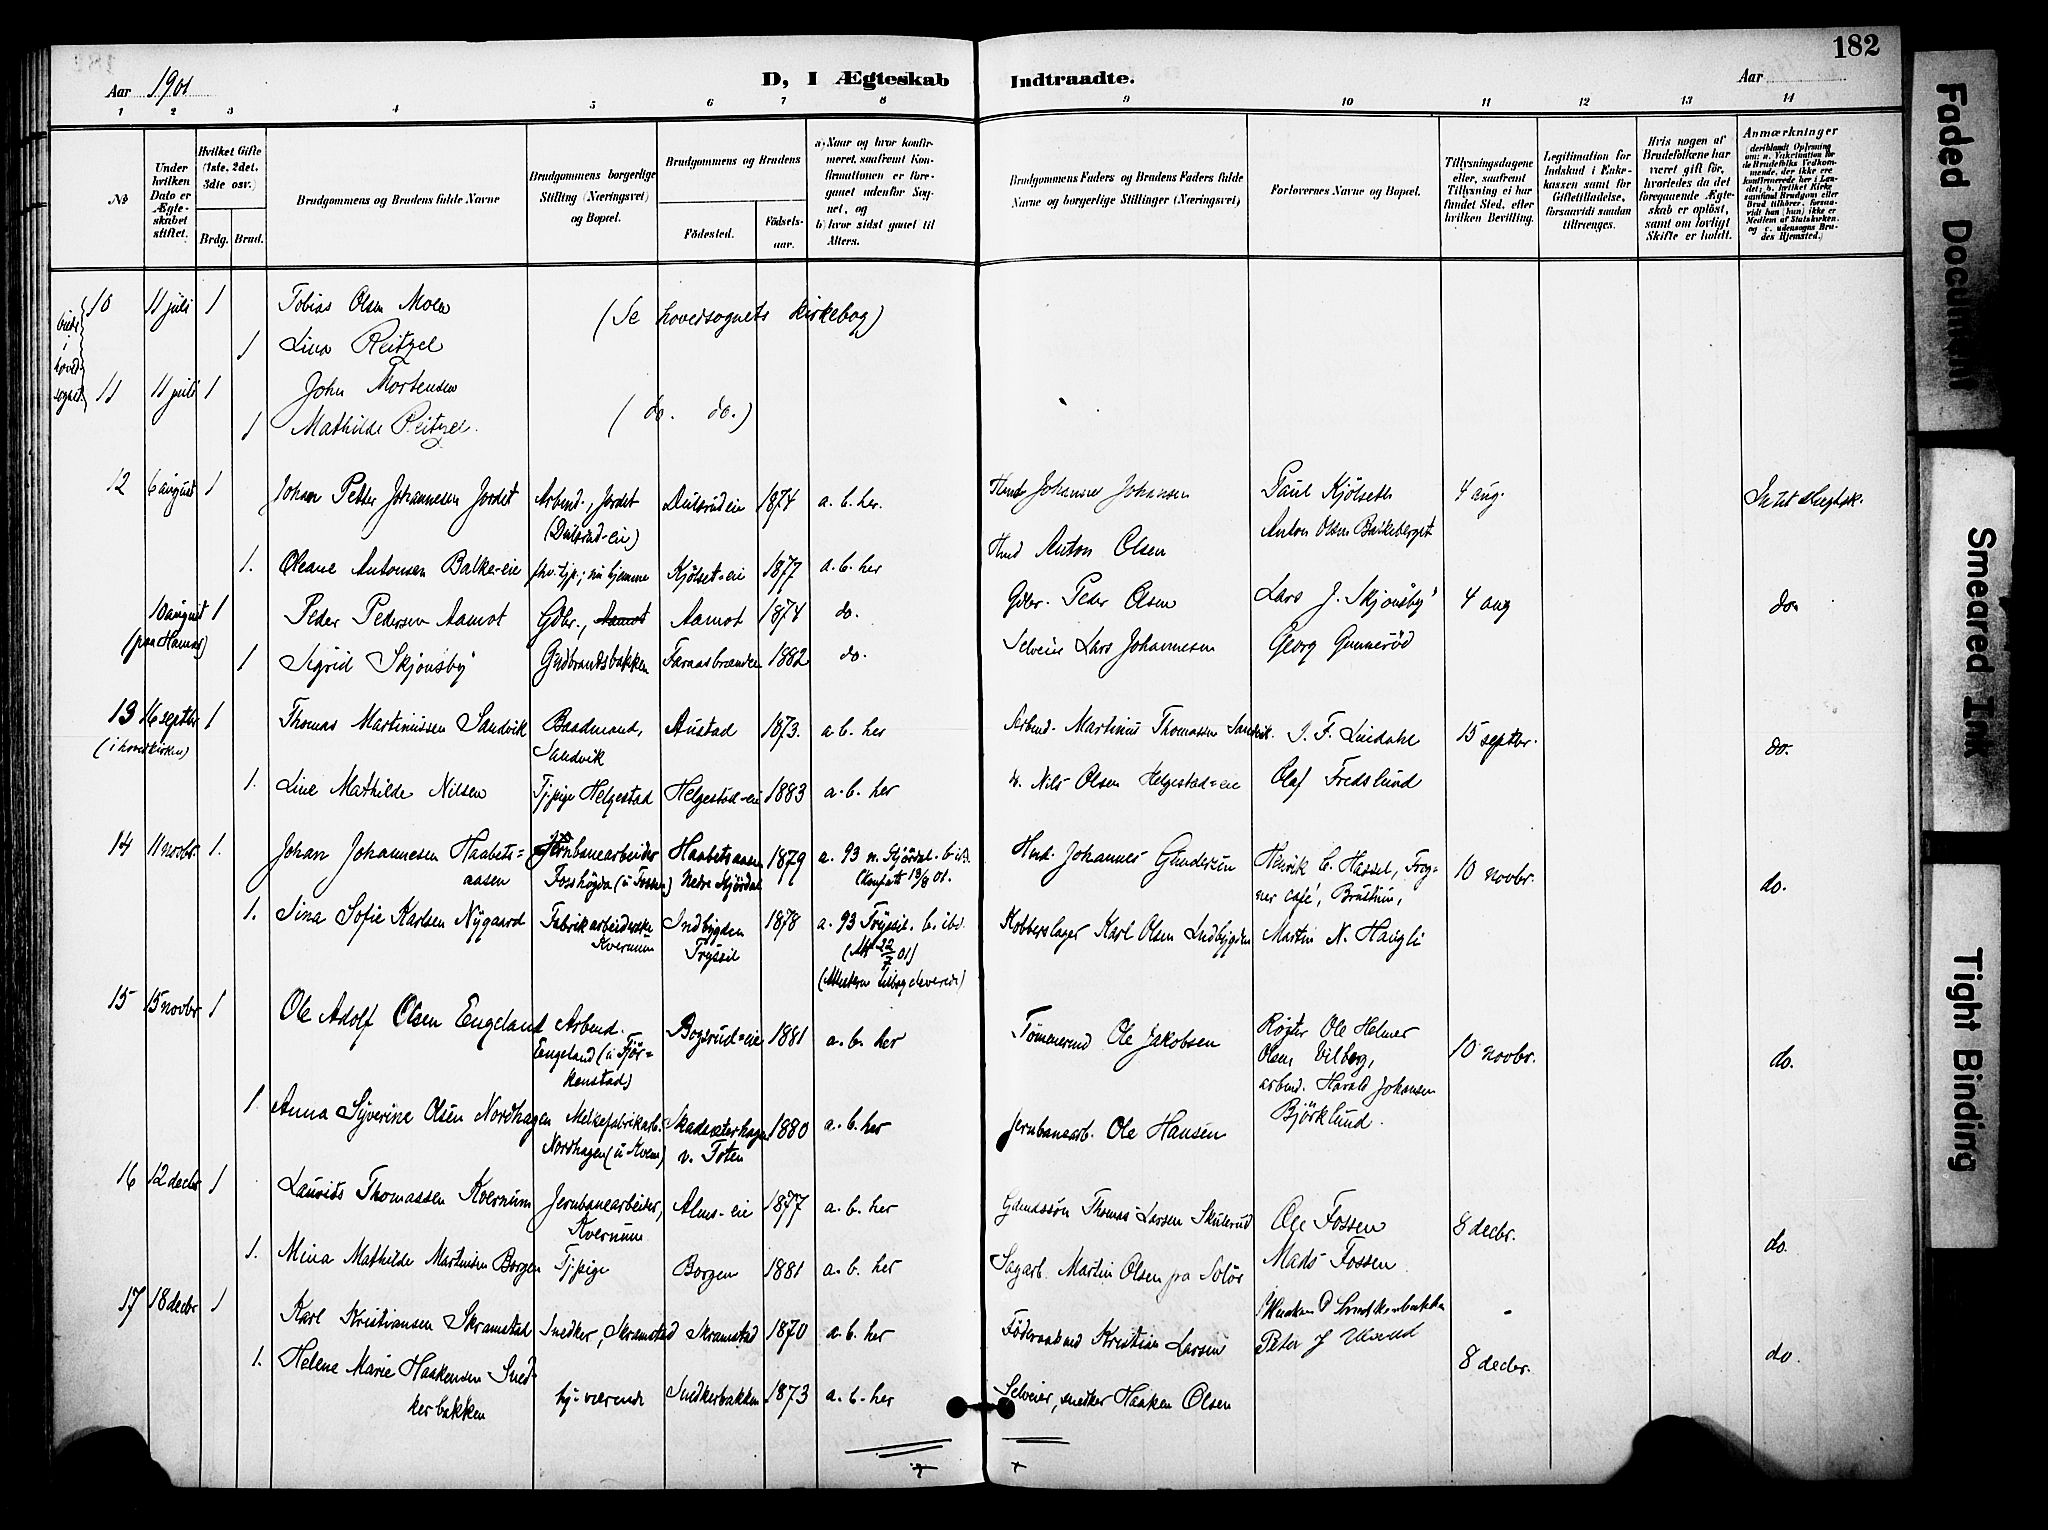 182
Aar 1901
D, I Ægteskab Indtraadte.
Aar
1 2 3 4 5 6 7 8 9 10 11 12 13 14
No
Under hvilken Dato er Ægteskabet stiftet.
Hvilket Gifte (1ste, 2det, 3die osv.)
Brdg. Brud.
Brudgommens og Brudens fulde Navne
Brudgommens borgerlige Stilling (Næringsvei) og Bopæl.
Brudgommens og Brudens
Fødested. Fødselsaar.
a) Naar og hvor konfirmeret, saafremt Konfirmationen er foregaaet udenfor Sognet, og
b) hvor sidst gaaet til Alters.
Brudgommens Faders og Brudens Faders fulde Navne og borgerlige Stillinger (Næringsvei)
Forlovernes Navne og Bopæl.
Tillysningsdagene eller, saafremt Tillysning ei har fundet Sted, efter hvilken Bevilling.
Legitimation for Indskud i Enkekassen samt for Giftetilladelse, forsaavidt saadan tiltrænges.
Hvis nogen af Brudefolkene har været gift før, hvorledes da det foregaaende Ægteskab er opløst, samt om lovligt Skifte er holdt.
Anmærkninger
(deriblandt Oplysning om: a. Vakcination for de Brudefolks Vedkommende, der ikke ere konfirmerede her i Landet; b. hvilket Kirkesamfund Brudgom eller Brud tilhører, forsaavidt han (hun) ikke er Medlem af Statskirken, og c. udensogns Brudes Hjemsted.)
begge i hovedsognet
10 11 juli 1 Tobias Olsen Moen (Se hovedsognets kirkebog)
1 Lina Reitzel
11 11 juli 1 John Mortensen
1 Mathilde Reitzel. (do. do.)
12 6 august 1 Johan Petter Johannesen Jordet Arbmd., Jordet (Dulsrud-eie) Dulsrudeie 1874 a. b. her. Hmd Johannes Johansen Paul Kjölseth 4 aug. Intet slegtsk.
Anton Olsen Balkeberget
1. Oleane Antonsen Balke-eie fhv. tjp., nu hjemme Kjölset-eie 1877 a. b. her Hmd Anton Olsen
10 august (paa Hamar) 1 Peder Pedersen Aamot Gdbr., Aamot Aamot 1874 do. Gdbr. Peder Olsen Lars J. Skjönsby 4 aug do.
1 Sigrid Skjönsby Gudbrandsbakken Faraasbrænden 1882 do. Selveier Lars Johannesen Georg Gunneröd
13 16 septbr. (i hovedkirken) 1 Thomas Martinussen Sandvik Baadmand, Sandvik Austad 1873. a. b. her Arbmd. Martinus Thomassen Sandvik. J. F. Lindahl 15 septbr. do.
1. Line Mathilde Nilsen Tjpige Helgestad Helgestad-eie 1883 a. b. her Nils Olsen Helgestad-eie Olaf Fredslund
14 11 novbr. 1. Johan Johannesen Haabetsaasen Jernbanearbeider Fosshögda (u Fossen) Haabetsaasen Nedre Stjördal 1879 a. 93 n. Stjördal. b. ibd. Hmd. Johannes Gundersen Henrik C. Hassel, Frogner café, 10 novbr. do.
1. Sina Sofie Karlsen Nygaard Fabrikarbeiderske Kvernum Indbygden Trysil 1878 a. 93 Trysil. b. ibd. (Att 22/7 01) Kobberslager Karl Olsen Indbygden Martin N. Haugli
15 15 novbr 1 Ole Adolf Olsen Engeland Arbmd. Engeland (u Tjörkenstad) Bogsrud-eie 1881 a. b. her Tømmermd Ole Jakobsen Røgter Ole Helmer Olsen Vilberg, 10 novbr. do.
arbmd. Harald Johansen Björklund.
1 Anna Syverine Olsen Nordhagen Melkefabrikarb. Nordhagen (u Kvem) Skadsæterhagen v. Toten 1880 a. b. her Jernbanearb. Ole Hansen
16 12 decbr 1 Laurits Thomassen Kvernum Jernbanearbeider, Kvernum Alms-eie 1877 a. b. her Gdmdssön Thomas Larsen Skulerud Ole Fossen 8 decbr. do.
1. Mina Mathilde Martinsen Borgen Tjpige Borgen 1881 a. b. her Sagarb. Martin Olsen fra Solör Mads Fossen
17 18 decbr 1 Karl Kristiansen Skramstad Snedker, Skramstad Skramstad 1870 a. b. her Föderaadmd Kristian Larsen Haaken O Snedkerbakken
Peter J 8 decbr. do.
1. Helene Marie Haakensen Snedkerbakken hj. værende Snedkerbakken 1873 a. b. her Selveier, snedker Haaken Olsen
Faded Document
Smeared Ink
Tight Binding